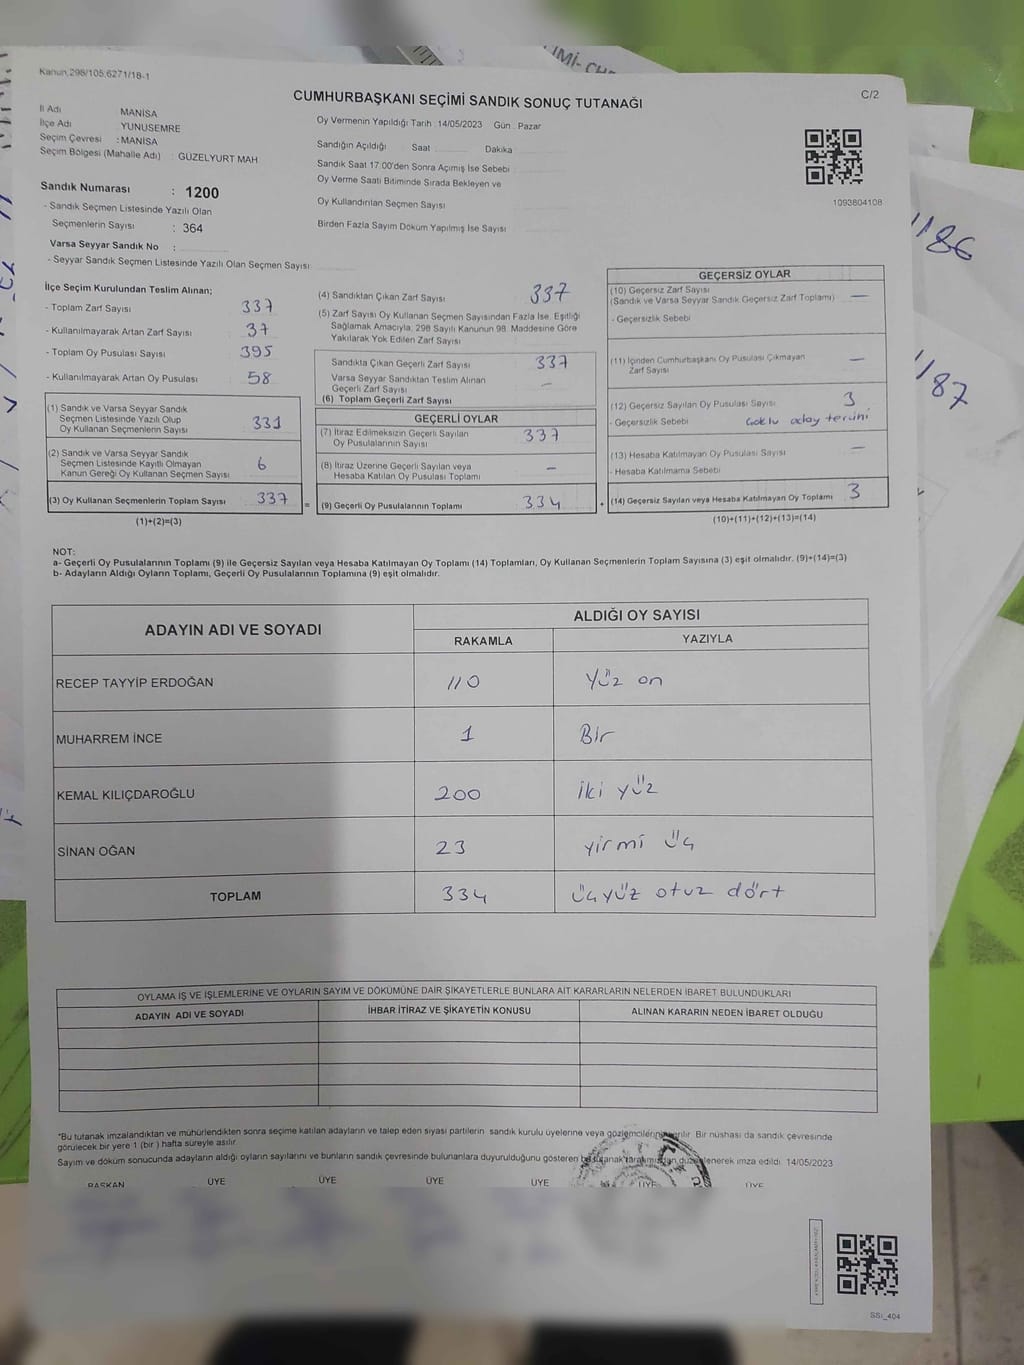 Kanun.298/105;6271/18-1
C/2
CUMHURBAŞKANI SEÇİMİ SANDIK SONUÇ TUTANAĞI
İl Adı MANİSA
İlçe Adı YUNUSEMRE
Seçim Çevresi : MANİSA
Seçim Bölgesi (Mahalle Adı) : GÜZELYURT MAH
Sandık Numarası : 1200
- Sandık Seçmen Listesinde Yazılı Olan
Seçmenlerin Sayısı : 364
Varsa Seyyar Sandık No :
- Seyyar Sandık Seçmen Listesinde Yazılı Olan Seçmen Sayısı
Oy Vermenin Yapıldığı Tarih : 14/05/2023 Gün : Pazar
Sandığın Açıldığı Saat Dakika
Sandık Saat 17:00'den Sonra Açımış İse Sebebi
Oy Verme Saati Bitiminde Sırada Bekleyen ve
Oy Kullandırılan Seçmen Sayısı
Birden Fazla Sayım Döküm Yapılmış İse Sayısı
1093804108
1186
1187
İlçe Seçim Kurulundan Teslim Alınan;
- Toplam Zarf Sayısı
- Kullanılmayarak Artan Zarf Sayısı 37
- Toplam Oy Pusulası Sayısı 395
- Kullanılmayarak Artan Oy Pusulası 58
(1) Sandık ve Varsa Seyyar Sandık
Seçmen Listesinde Yazılı Olup
Oy Kullanan Seçmenlerin Sayısı 331
(2) Sandık ve Varsa Seyyar Sandık
Seçmen Listesinde Kayıtlı Olmayan
Kanun Gereği Oy Kullanan Seçmen Sayısı 6
(3) Oy Kullanan Seçmenlerin Toplam Sayısı 337 =
(1)+(2)=(3)
(4) Sandıktan Çıkan Zarf Sayısı 337
(5) Zarf Sayısı Oy Kullanan Seçmen Sayısından Fazla İse, Eşitliği
Sağlamak Amacıyla, 298 Sayılı Kanunun 98. Maddesine Göre
Yakılarak Yok Edilen Zarf Sayısı
Sandıkta Çıkan Geçerli Zarf Sayısı 337
Varsa Seyyar Sandıktan Teslim Alınan
Geçerli Zarf Sayısı -
(6) Toplam Geçerli Zarf Sayısı
GEÇERLİ OYLAR
(7) İtiraz Edilmeksizin Geçerli Sayılan
Oy Pusulalarının Sayısı 337
(8) İtiraz Üzerine Geçerli Sayılan veya
Hesaba Katılan Oy Pusulası Toplamı -
(9) Geçerli Oy Pusulalarının Toplamı 334 +
GEÇERSİZ OYLAR
(10) Geçersiz Zarf Sayısı
(Sandık ve Varsa Seyyar Sandık Geçersiz Zarf Toplamı) -
- Geçersizlik Sebebi
(11) İçinden Cumhurbaşkanı Oy Pusulası Çıkmayan
Zarf Sayısı -
(12) Geçersiz Sayılan Oy Pusulası Sayısı 3
- Geçersizlik Sebebi Çoklu aday tercihi
(13) Hesaba Katılmayan Oy Pusulası Sayısı -
- Hesaba Katılmama Sebebi
(14) Geçersiz Sayılan veya Hesaba Katılmayan Oy Toplamı 3
(10)+(11)+(12)+(13)=(14)
NOT:
a- Geçerli Oy Pusulalarının Toplamı (9) ile Geçersiz Sayılan veya Hesaba Katılmayan Oy Toplamı (14) Toplamları, Oy Kullanan Seçmenlerin Toplam Sayısına (3) eşit olmalıdır. (9)+(14)=(3)
b- Adayların Aldığı Oyların Toplamı, Geçerli Oy Pusulalarının Toplamına (9) eşit olmalıdır.
ADAYIN ADI VE SOYADI ALDIĞI OY SAYISI
RAKAMLA YAZIYLA
RECEP TAYYİP ERDOĞAN 110 Yüz on
MUHARREM İNCE 1 Bir
KEMAL KILIÇDAROĞLU 200 iki yüz
SİNAN OĞAN 23 yirmi üç
TOPLAM 334 üçyüz otuz dört
OYLAMA İŞ VE İŞLEMLERİNE VE OYLARIN SAYIM VE DÖKÜMÜNE DAİR ŞİKAYETLERLE BUNLARA AİT KARARLARIN NELERDEN İBARET BULUNDUKLARI
ADAYIN ADI VE SOYADI İHBAR İTİRAZ VE ŞİKAYETİN KONUSU ALINAN KARARIN NEDEN İBARET OLDUĞU
*Bu tutanak imzalandıktan ve mühürlendikten sonra seçime katılan adayların ve talep eden siyasi partilerin sandık kurulu üyelerine veya gözlemcilerine verilir. Bir nüshası da sandık çevresinde
görülecek bir yere 1 (bir) hafta süreyle asılır.
Sayım ve döküm sonucunda adayların aldığı oyların sayılarını ve bunların sandık çevresinde bulunanlara duyurulduğunu gösteren bu tutanak tarafımızdan düzenlenerek imza edildi. 14/05/2023
BAŞKAN ÜYE ÜYE ÜYE ÜYE ÜYE ÜYE
SSI_404